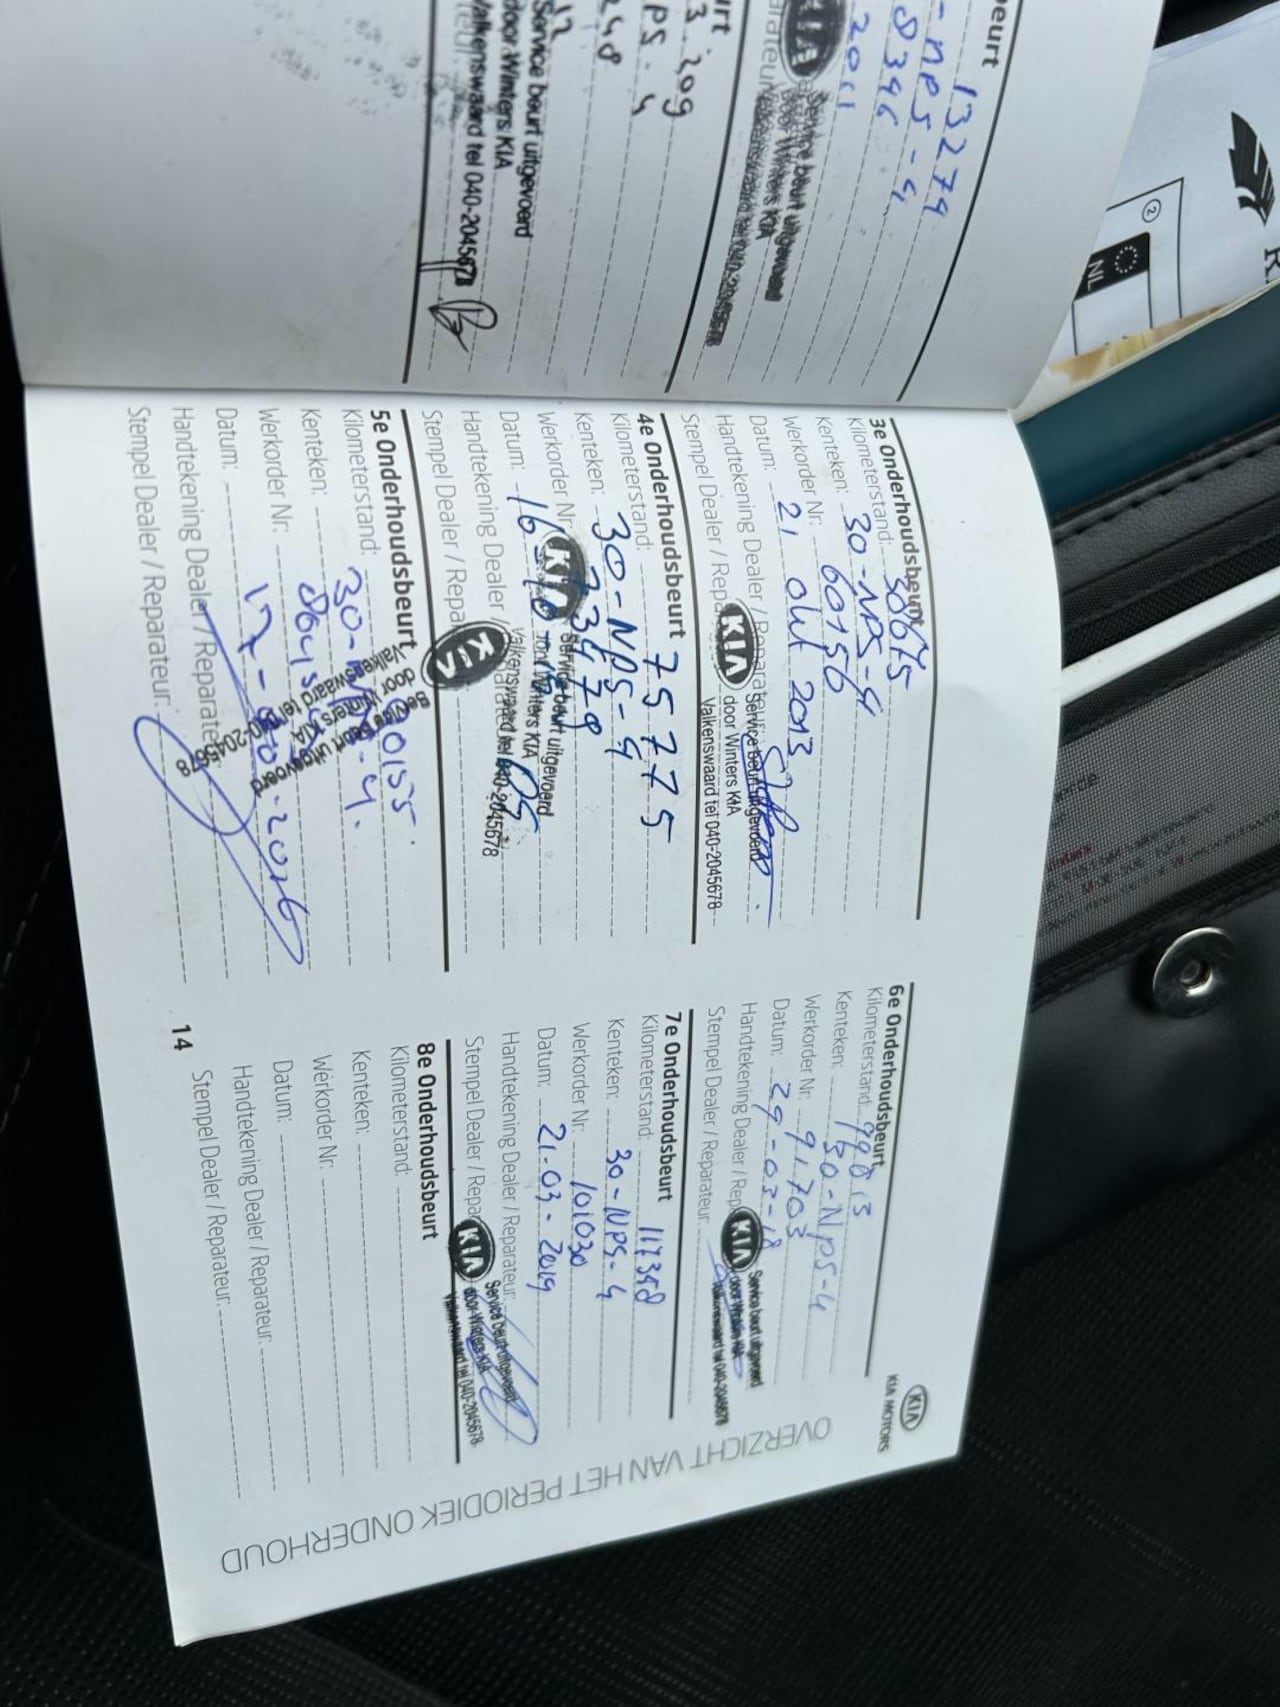 beurt
13274
-NPS-4
8346
2011
KIA
Service beurt uitgevoerd
door Winters KIA
Valkenswaard tel 040-2045678
urt
3.209
PS-4
248
12
Service beurt uitgevoerd
door Winters KIA
Valkenswaard tel 040-2045678
3e Onderhoudsbeurt
Kilometerstand:
Kenteken: 30-NPS-4
Werkorder Nr: 60156
Datum: 21 okt 2013
Handtekening Dealer / Reparateur:
Stempel Dealer / Repa
KIA
Service beurt uitgevoerd
door Winters KIA
Valkenswaard tel 040-2045678
4e Onderhoudsbeurt
Kilometerstand: 75775
Kenteken: 30-NPS-4
Werkorder Nr: 73479
Datum: 16-10-
Handtekening Dealer / Reparateur:
Stempel Dealer / Repa
KIA
Service beurt uitgevoerd
door Winters KIA
Valkenswaard tel 040-2045678
KIA
5e Onderhoudsbeurt
Kilometerstand:
Kenteken: 30-NPS-4.
Werkorder Nr:
Datum: 17-10-2016
Handtekening Dealer / Reparateur:
Stempel Dealer / Reparateur:
Service beurt uitgevoerd
door Winters KIA
Valkenswaard tel 040-2045678
6e Onderhoudsbeurt
Kilometerstand: 99813
Kenteken: 30-NPS-4
Werkorder Nr: 91703
Datum: 29-03-18
Handtekening Dealer / Rep
Stempel Dealer / Reparateur:
KIA
Service beurt uitgevoerd
door Winters KIA
Valkenswaard tel 040-2045678
7e Onderhoudsbeurt
Kilometerstand: 117358
Kenteken: 30-NPS-4
Werkorder Nr: 101030
Datum: 21-03-2019
Handtekening Dealer / Reparateur:
Stempel Dealer / Repar
KIA
Service beurt uitgevoerd
door Winters KIA
Valkenswaard tel 040-2045678
8e Onderhoudsbeurt
Kilometerstand:
Kenteken:
Werkorder Nr:
Datum:
Handtekening Dealer / Reparateur:
Stempel Dealer / Reparateur:
14
KIA
KIA MOTORS
OVERZICHT VAN HET PERIODIEK ONDERHOUD
2
NL